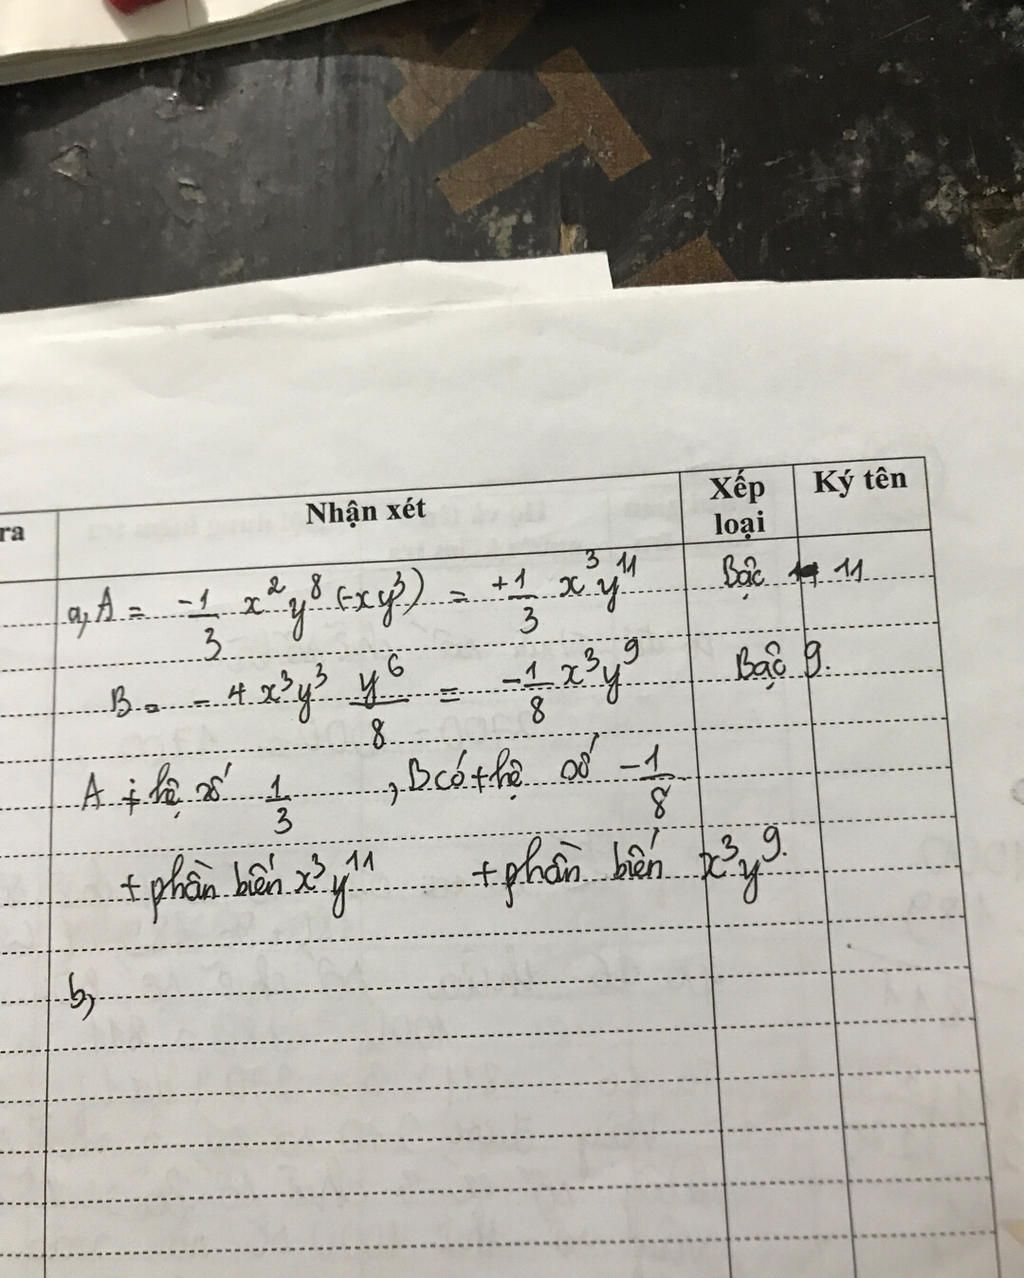 ra Nhận xét Xếp loại Ký tên
a, A = -1/3 x² y⁸ (-xy³) = +1/3 x³ y¹¹ Bậc 11
B = - 4 x³y³ y⁶/8 = -1/8 x³y⁹ Bậc 9.
A + hệ số 1/3 , B có + hệ số -1/8
+ phần biến x³y¹¹ + phần biến x³y⁹.
b,